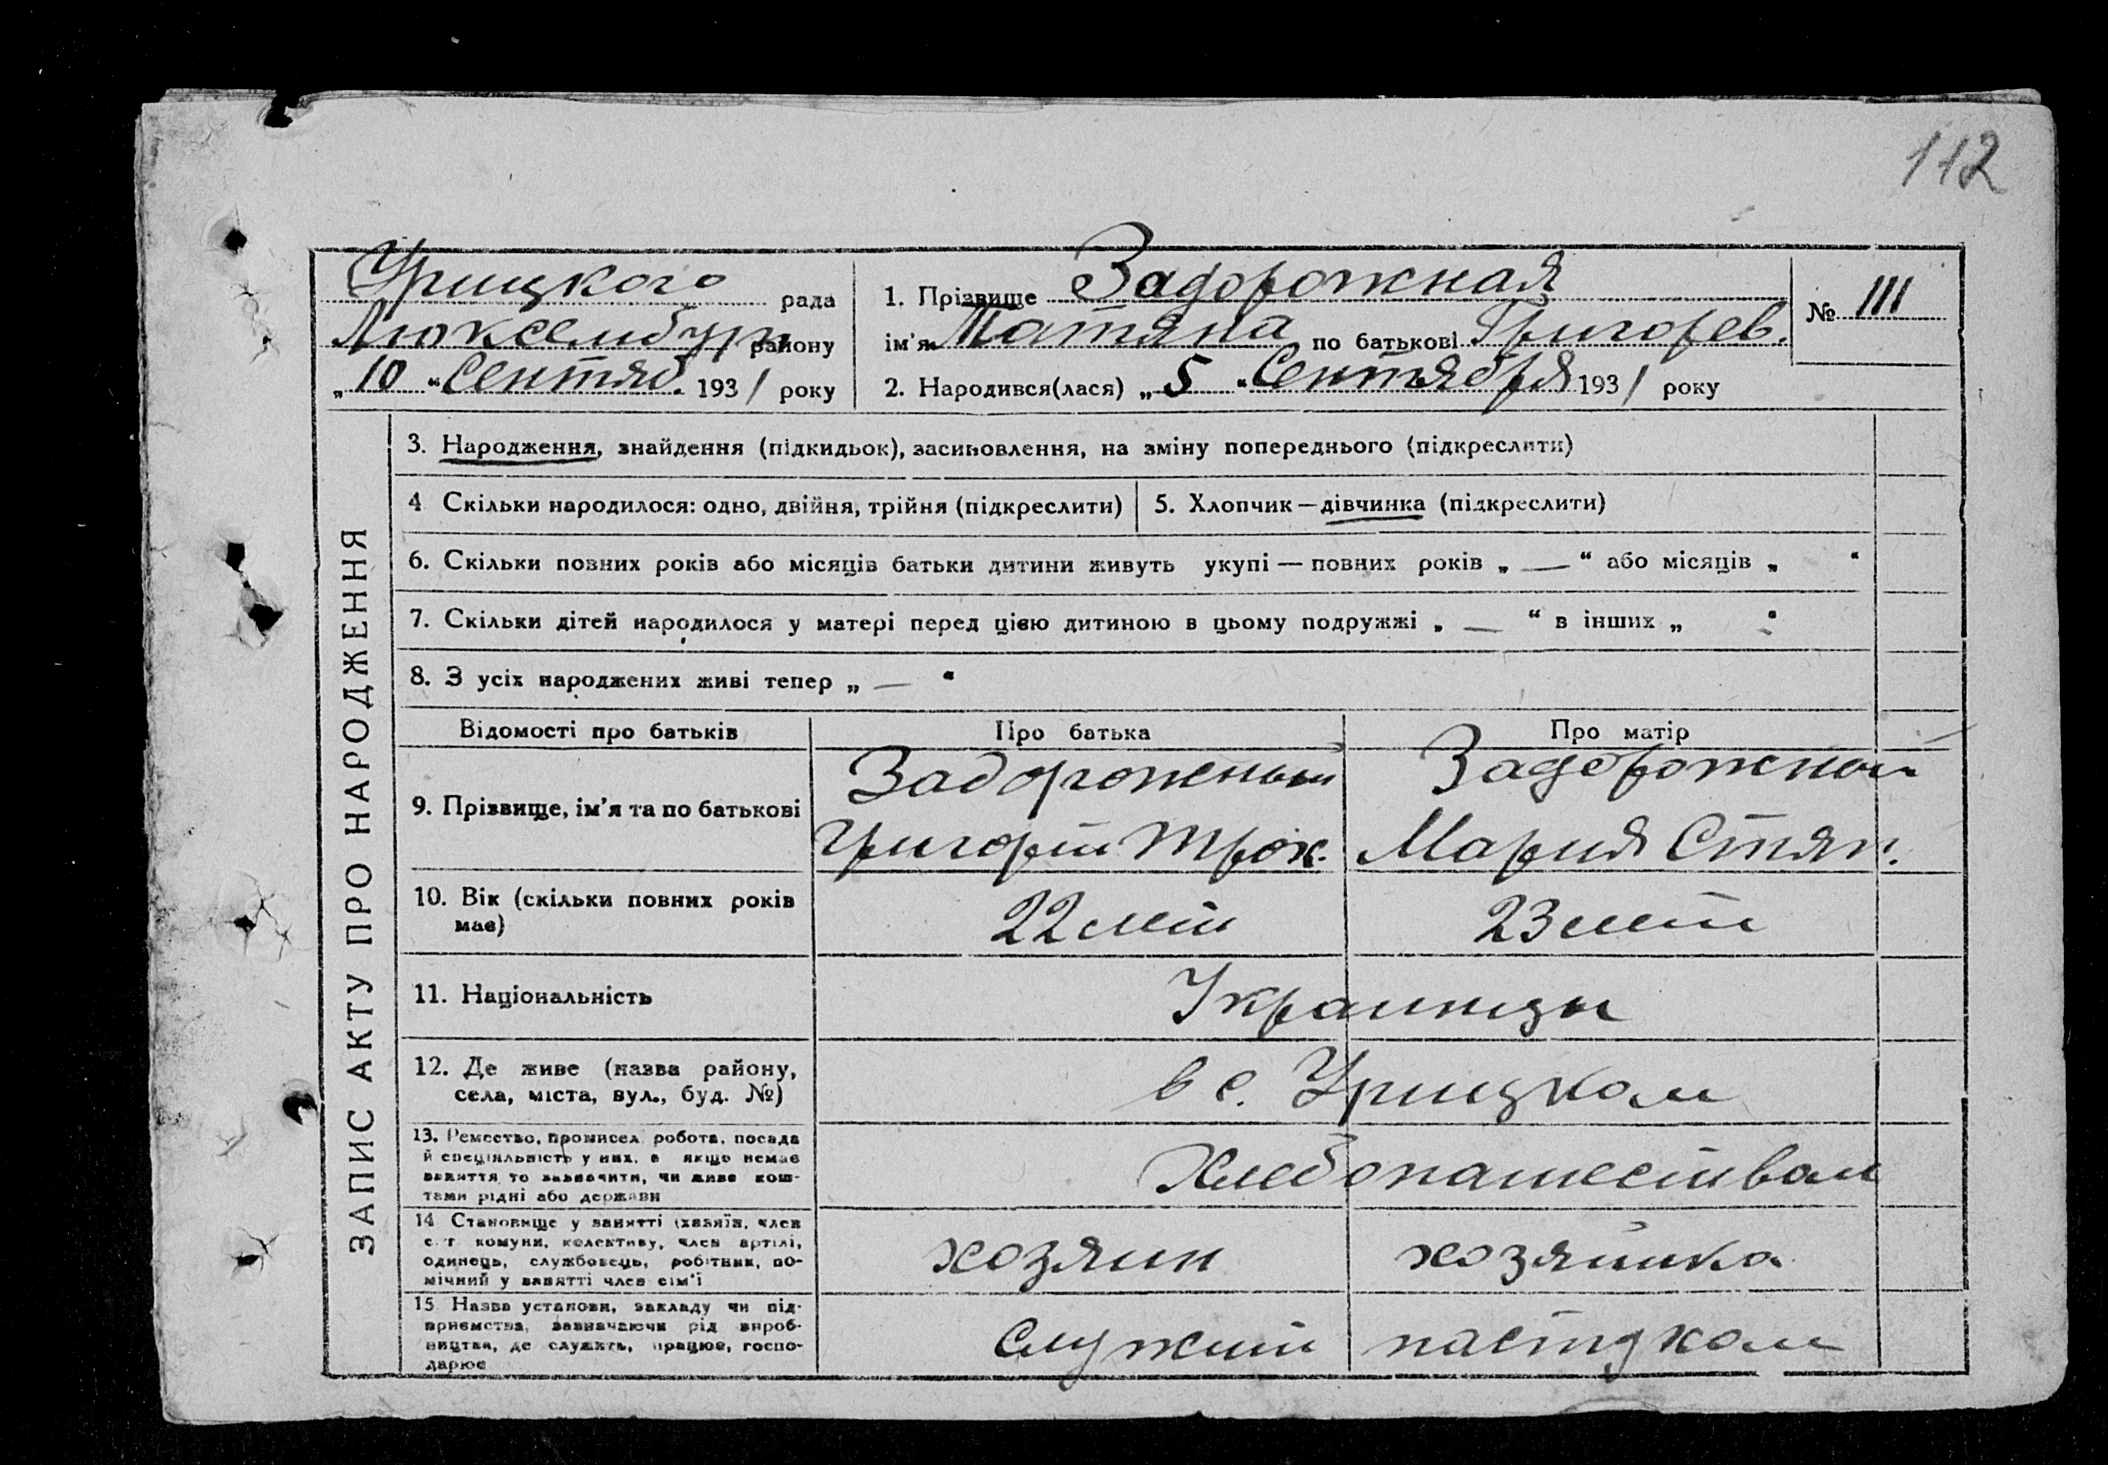 112
Урицкого рада
Люксембург району
„10“ Сентяб. 1931 року
1. Прізвище Задорожная
ім'я Татяна по батькові Григорев.
2. Народився(лася) „5“ Сентября 1931 року
№ 111
ЗАПИС АКТУ ПРО НАРОДЖЕННЯ
3. Народження, знайдення (підкидьок), засиновлення, на зміну попереднього (підкреслити)
4 Скільки народилося: одно, двійня, трійня (підкреслити)
5. Хлопчик — дівчинка (підкреслити)
6. Скільки повних років або місяців батьки дитини живуть укупі — повних років „ — “ або місяців „ “
7. Скільки дітей народилося у матері перед цією дитиною в цьому подружжі „ — “ в інших „ “
8. З усіх народжених живі тепер „ — “
Відомості про батьків
Про батька
Про матір
9. Прізвище, ім'я та по батькові
Задорожный
Григорий Трох.
Задорожной
Мария Стяп.
10. Вік (скільки повних років
має)
22 лет
23 лет
11. Національність
Украинцы
12. Де живе (назва району,
села, міста, вул., буд. №)
в с. Урицком
13. Ремество, промисел, робота, посада
й спеціяльність у них, а якщо немає
заняття, то зазначити, чи живе кош-
тами рідні або держави
Хлебопашеством
14 Становище у занятті (хазяїн, член
с.-г. комуни, колективу, член артілі,
одинець, службовець, робітник, по-
мічний у занятті член сім'ї
хозяин
хозяйка
15 Назва установи, закладу чи під-
приємства, зазначаючи рід вироб-
ництва, де служить, працює, госпо-
дарює
Служит пастухом